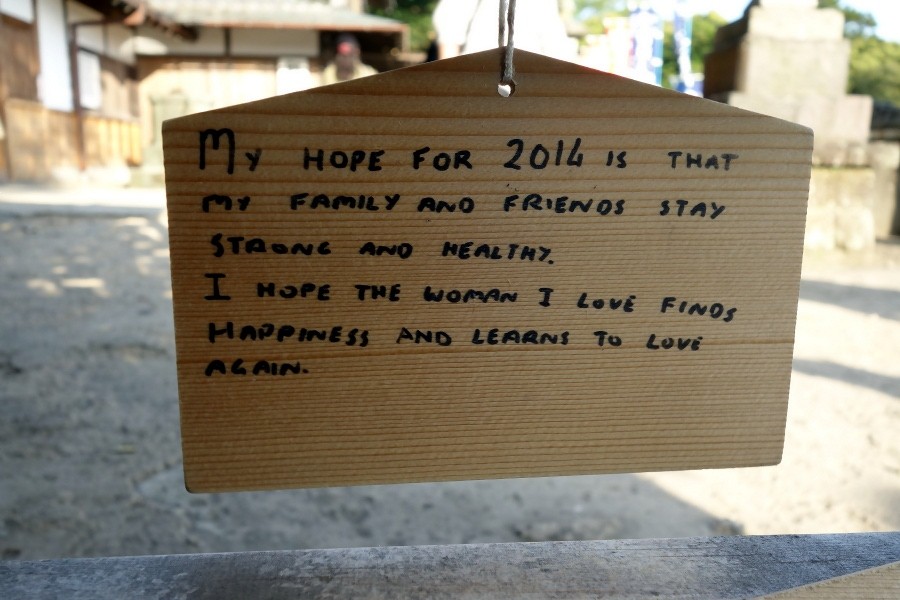 My HOPE FOR 2014 IS THAT
MY FAMILY AND FRIENDS STAY
STRONG AND HEALTHY.
I HOPE THE WOMAN I LOVE FINDS
HAPPINESS AND LEARNS TO LOVE
AGAIN.